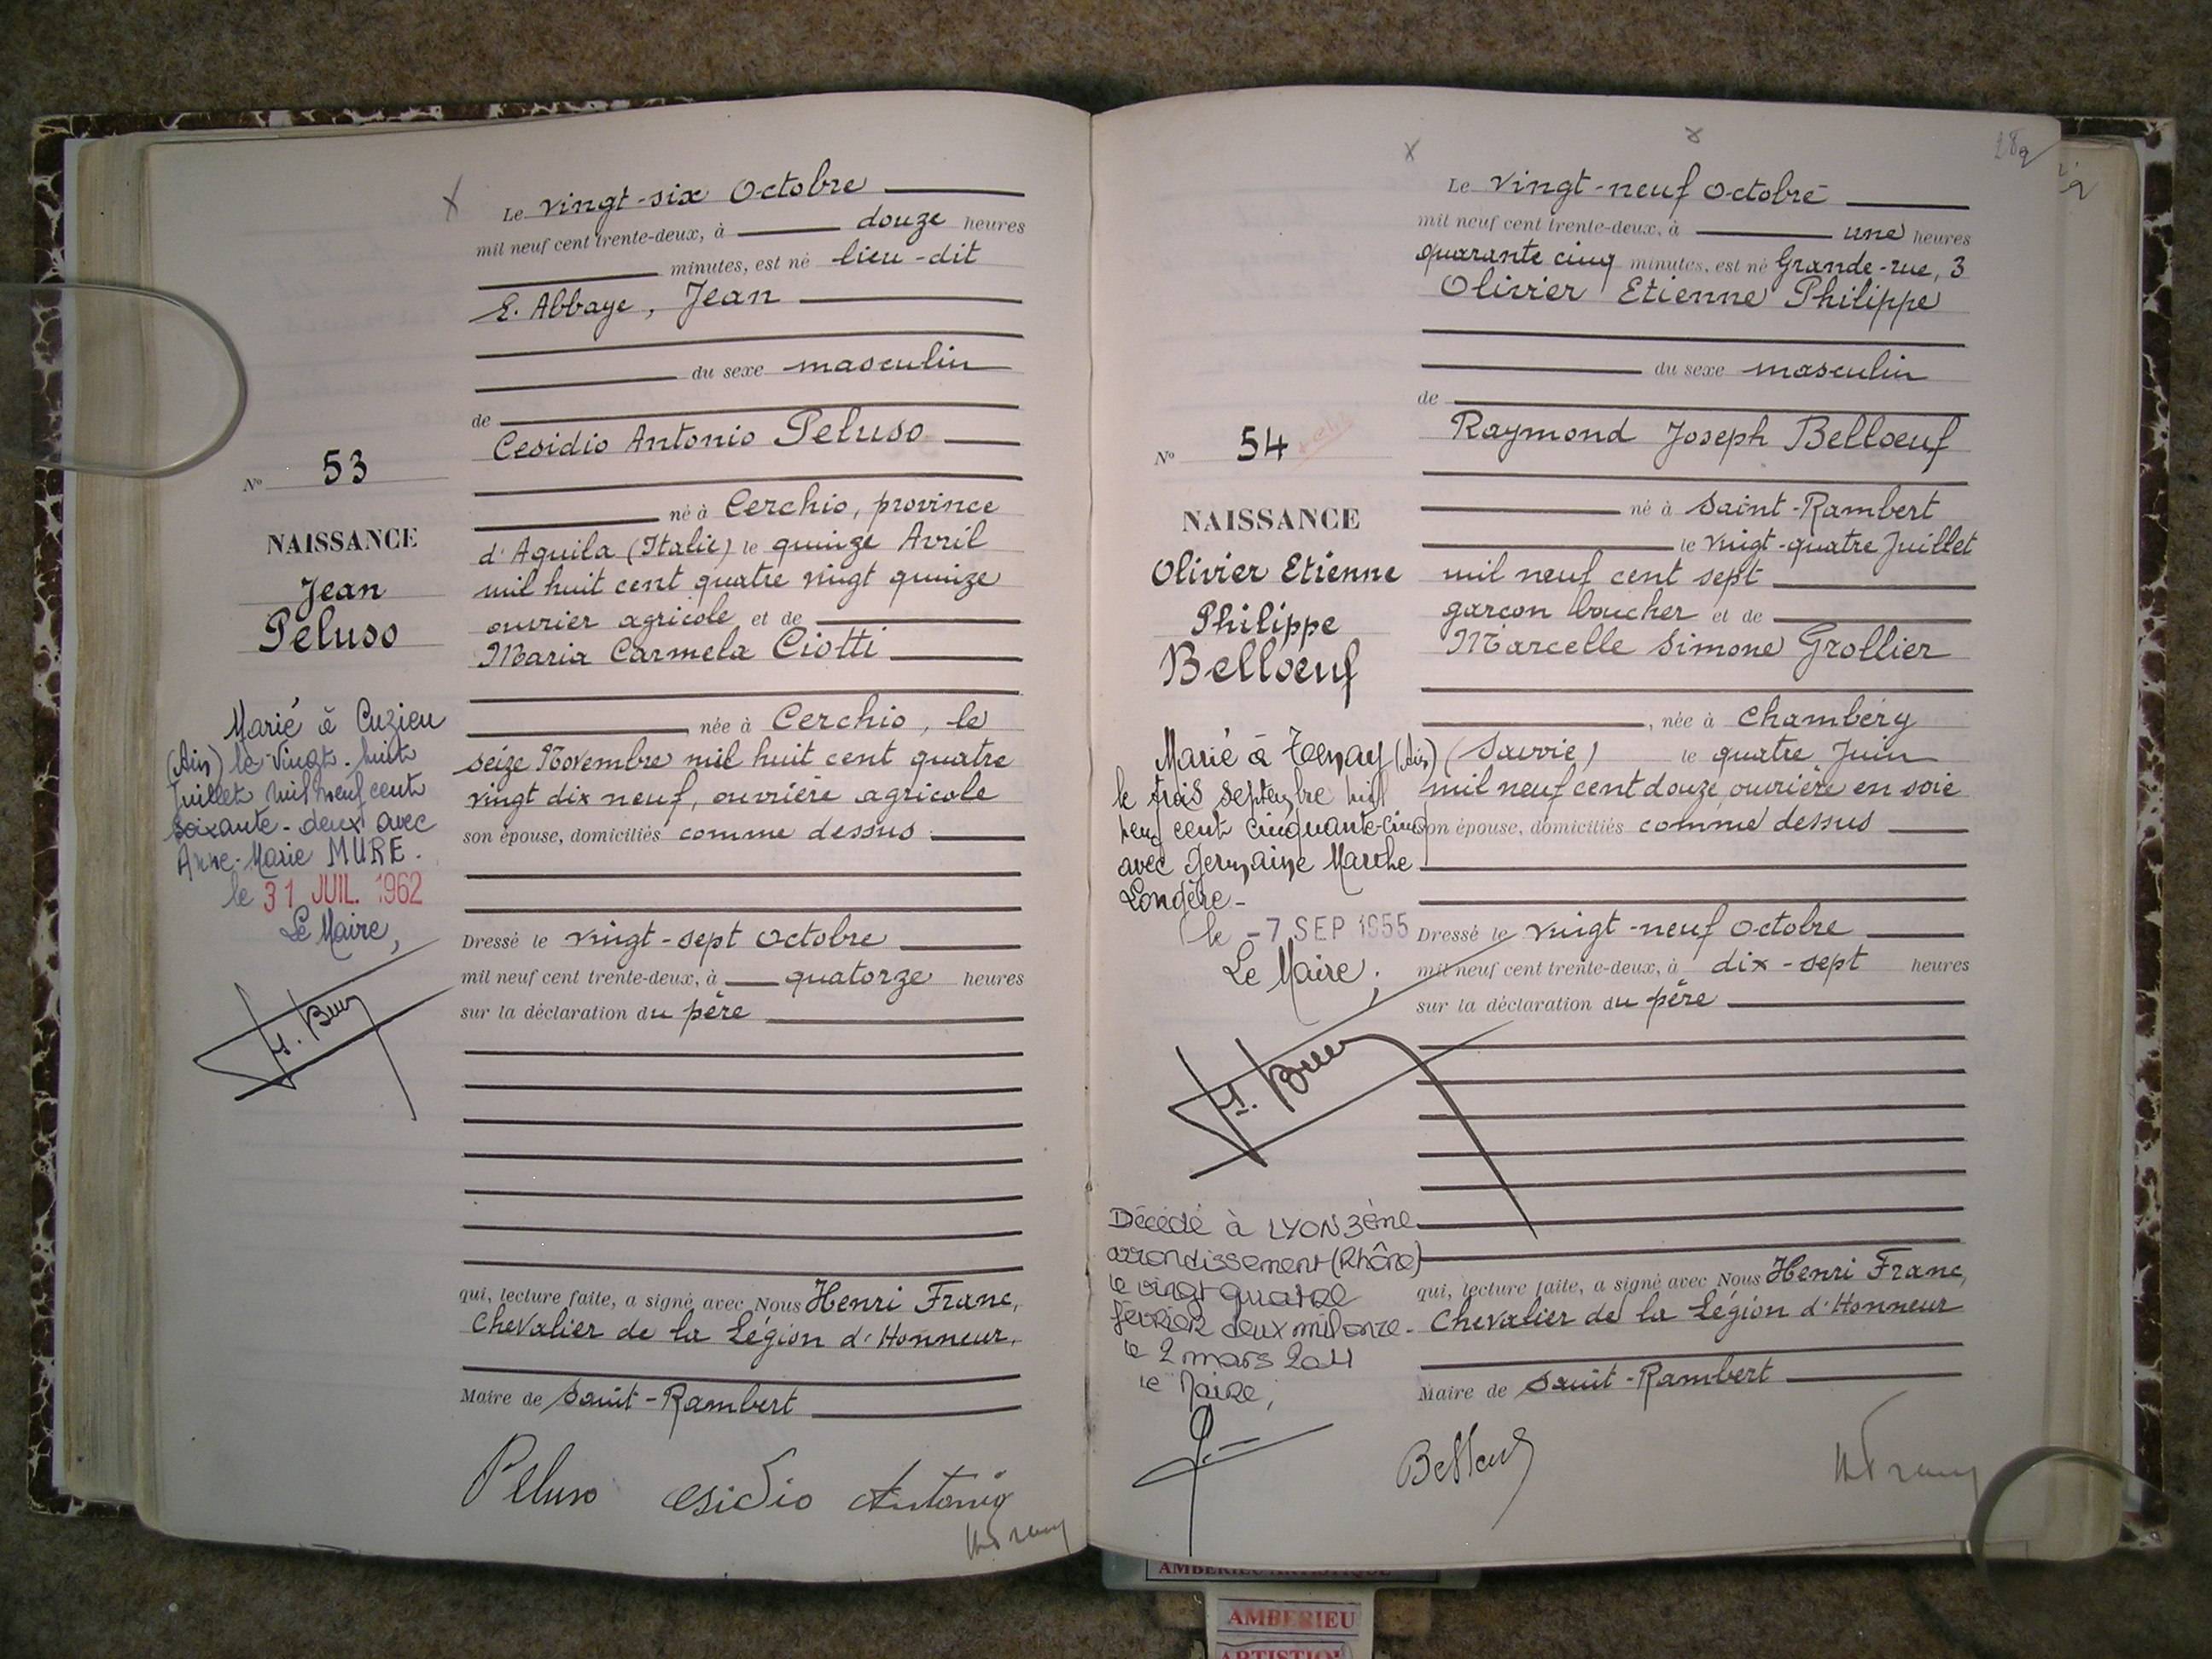 Le vingt-six Octobre
mil neuf cent trente-deux, à douze heures
minutes, est né lieu-dit
L'Abbaye, Jean
du sexe masculin
de
Cesidio Antonio Peluso
né à Cerchio, province
d'Aquila (Italie) le quinze Avril
mil huit cent quatre vingt quinze
ouvrier agricole et de
Maria Carmela Ciotti
née à Cerchio, le
seize Novembre mil huit cent quatre
vingt dix neuf, ouvrière agricole
son épouse, domiciliés comme dessus
Dressé le vingt-sept Octobre
mil neuf cent trente-deux, à quatorze heures
sur la déclaration du père
qui, lecture faite, a signé avec Nous Henri Franc,
Chevalier de la Légion d'Honneur,
Maire de Saint-Rambert
Peluso esidio Antonio
No 53
NAISSANCE
Jean
Peluso
Marié à Cuzieu
(Ain) le vingt-huit
Juillet mil neuf cent
soixante-deux avec
Anne-Marie MURE.
le 31 JUIL. 1962
Le Maire,
Le vingt-neuf Octobre
mil neuf cent trente-deux, à une heures
quarante cinq minutes, est né Grande-rue, 3
Olivier Etienne Philippe
du sexe masculin
de
Raymond Joseph Belloeuf
né à Saint-Rambert
le vingt-quatre Juillet
mil neuf cent sept
garçon boucher et de
Marcelle Simone Grollier
, née à Chambéry
(Savoie) le quatre Juin
mil neuf cent douze, ouvrière en soie
son épouse, domiciliés comme dessus
Dressé le vingt-neuf Octobre
mil neuf cent trente-deux, à dix-sept heures
sur la déclaration du père
qui, lecture faite, a signé avec Nous Henri Franc,
Chevalier de la Légion d'Honneur
Maire de Saint-Rambert
No 54
NAISSANCE
Olivier Etienne
Philippe
Belloeuf
Marié à Tenay (Ain)
le trois septembre mil
neuf cent cinquante-cinq
avec Germaine Marthe
Longère-
le -7 SEP 1955
Le Maire,
Décédé à LYON 3ème
arrondissement (Rhône)
le vingt quatre
février deux mil onze.
le 2 mars 2011
le Maire,
AMBERIEU ARTISTIQUE
AMBERIEU